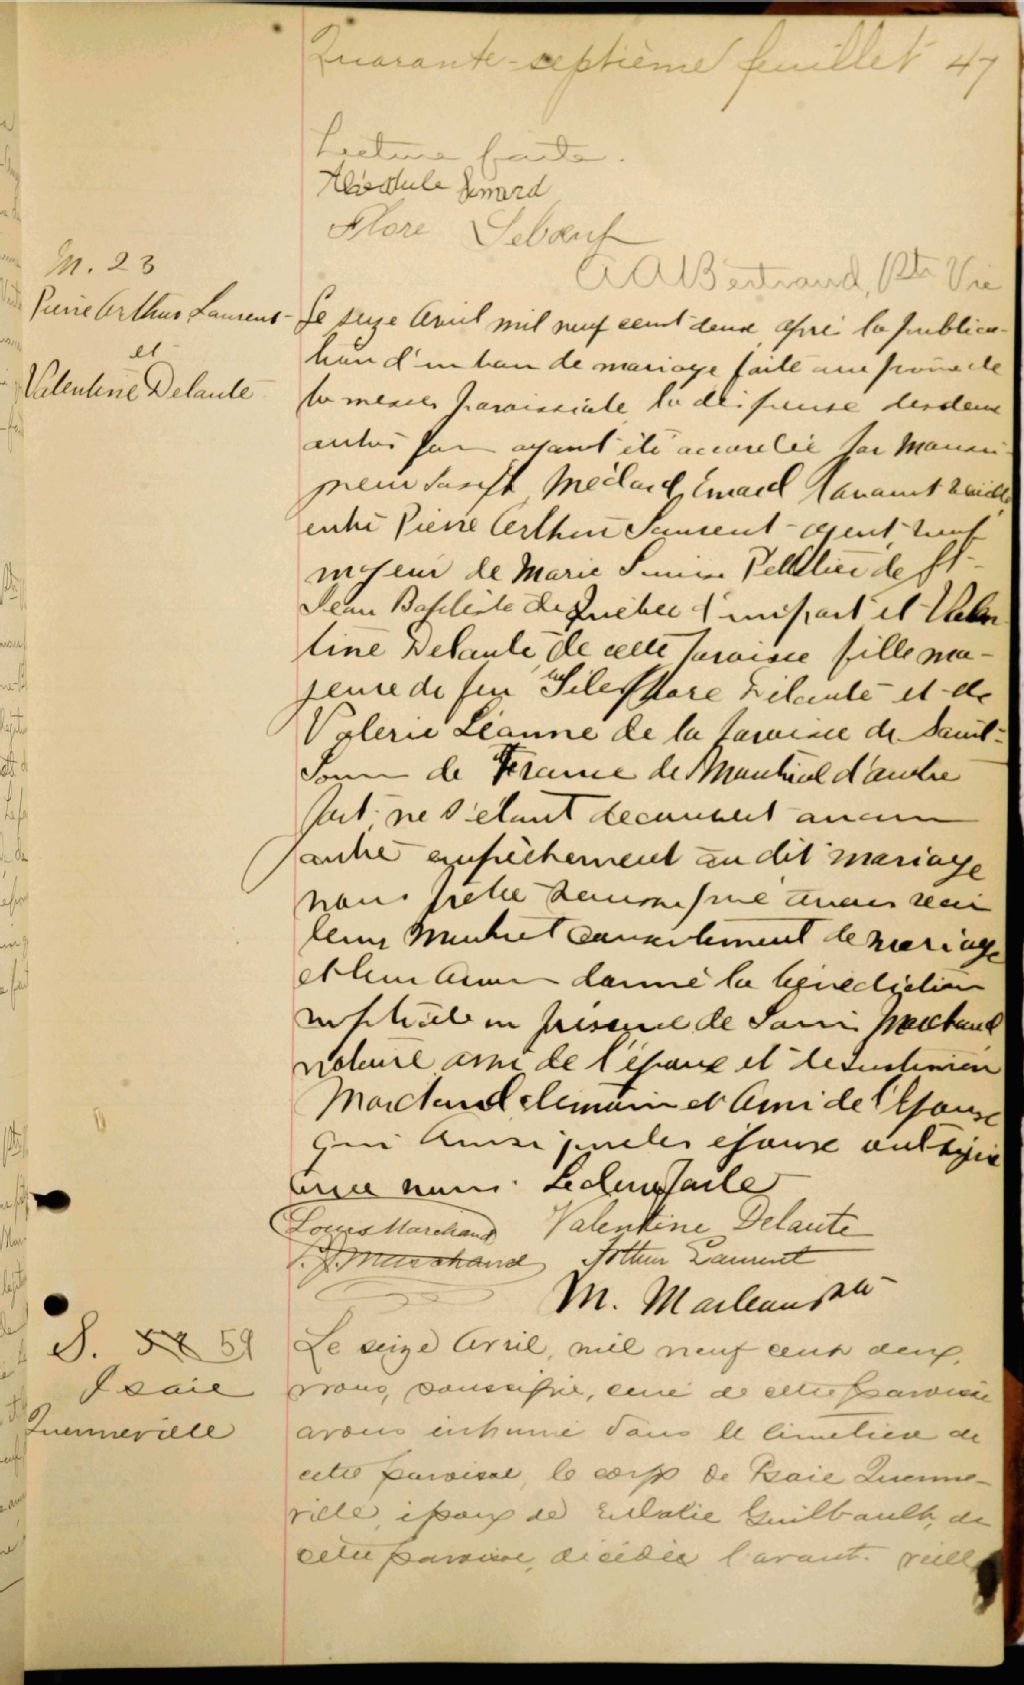 Quarante-septième feuillet 47
Lecture faite.
Flore Lebœuf
A A Bertrand, Ptr Vic
M. 23
Pierre Arthur Laurent
et
Valentine Delaute
Le seize Avril mil neuf cent deux, après la publica-
tion d'un ban de mariage faite au prône de
la messe paroissiale la dispense des deux
autres ban ayant été accordée par Monsei-
gneur Joseph Médard Emard l'avant veille
entre Pierre Arthur Laurent agent, veuf
majeur de Marie Pelletier de St-
Jean Baptiste de Québec d'une part et Valen-
tine Delaute de cette paroisse fille ma-
jeure de feu Télesphore Delaute et de
Valerie Léanne de la paroisse de Saint-
Louis de France de Montréal d'autre
part, ne s'étant découvert aucun
autre empêchement au dit mariage
nous prêtre soussigné avons reçu
leur mutuel consentement de mariage
et leur avons donné la bénédiction
nuptiale en présence de Louis Marchand
notaire ami de l'époux et de
Marchand et ami de l'épouse
qui ainsi que les époux ont signé
avec nous. Lecture faite
Louis Marchand Valentine Delaute
Marchand Arthur Laurent
M. Marleau ptr
S. 59
Isaie
Quenneville
Le seize Avril, mil neuf cent deux,
nous, soussigné, curé de cette paroisse
avons inhumé dans le cimetière de
cette paroisse, le corps de Isaie Quenne-
ville, époux de Eulalie Guilbault, de
cette paroisse, décédée l'avant-veille